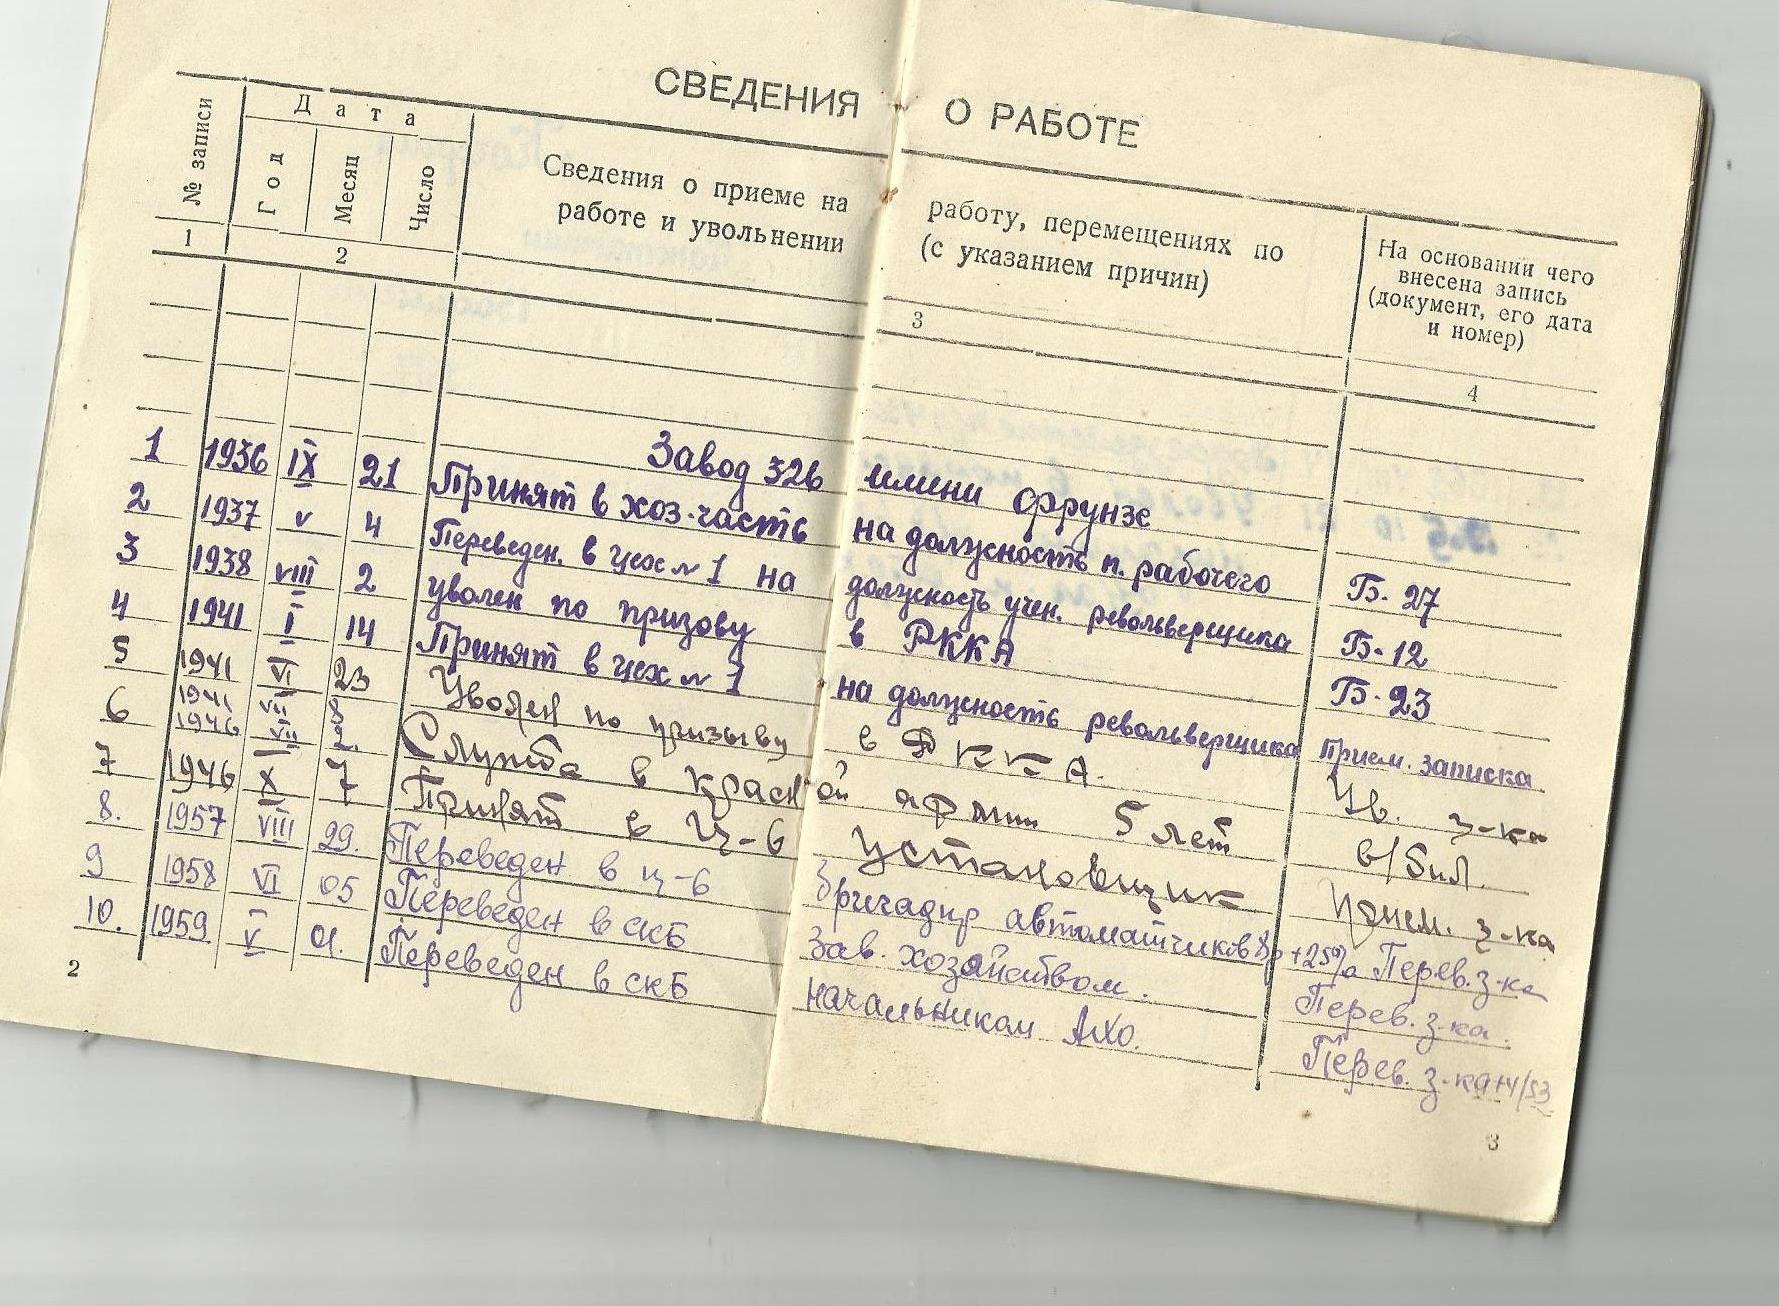 СВЕДЕНИЯ О РАБОТЕ
№ записи
Дата
Год
Месяц
Число
Сведения о приеме на работу, перемещениях по
работе и увольнении (с указанием причин)
На основании чего
внесена запись
(документ, его дата
и номер)
1 2 3 4
Завод 326 имени Фрунзе
1 1936 IX 21 Принят в хоз-часть на должность п. рабочего Б-27
2 1937 V 4 Переведен. в цех № 1 на должность учен. револьверщика Б-12
3 1938 VIII 2 уволен по призову в РККА Б-23
4 1941 I 14 Принят в цех № 1 на должность револьверщика Прием. записка
5 1941 VI 23 Уволен по призыву в РККА. Ув. з-ка
1941 VII 8
6 1946 VII 2. Служба в красной армии 5 лет в/бил.
7 1946 X 7 Принят в ц-6 установщик Прием. з-ка
8. 1957 VIII 29. Переведен в ц-6 бригадир автоматчиков 8р +25% Перев. з-ка
9 1958 VI 05 Переведен в СКБ Зав. хозяйством. Перев. з-ка.
10. 1959 V 01. Переведен в СКБ начальником АХО. Перев. з-ка
2
3